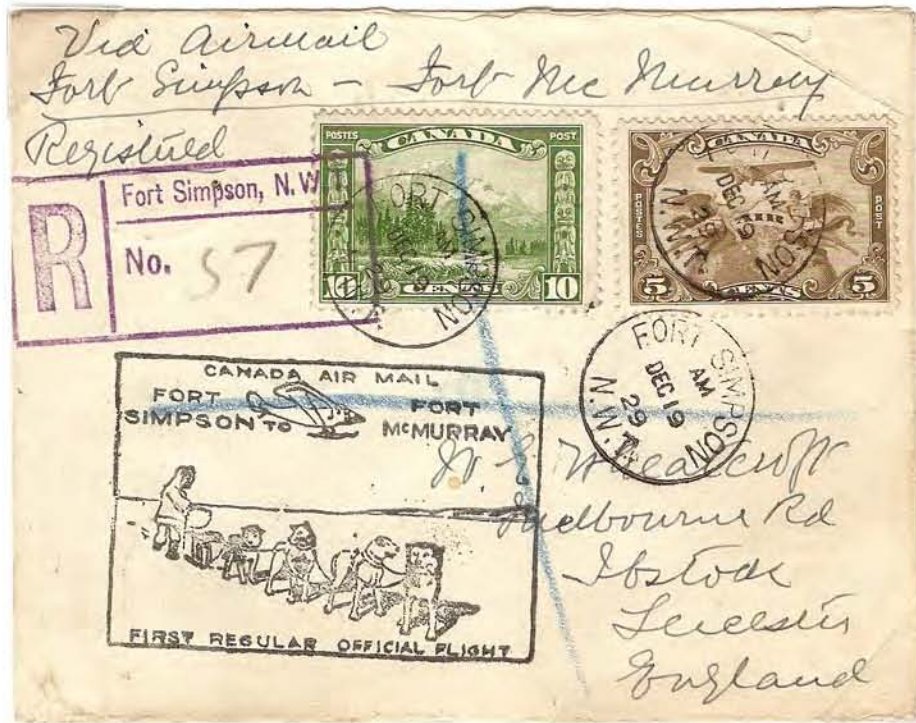 Via Airmail
Fort Simpson — Fort Mc Murray
Registered
R
Fort Simpson, N.W
No. 57
POSTES CANADA POST
10 CENTS 10
CANADA
POSTES POST
5 CENTS 5
FORT SIMPSON
AM
DEC 19
29
N.W.T.
SIMPSON
AM
DEC 19
29
N.W.T.
FORT SIMPSON
AM
DEC 19
29
N.W.T.
CANADA AIR MAIL
FORT SIMPSON TO FORT McMURRAY
FIRST REGULAR OFFICIAL FLIGHT
W. E. Wheatcroft
Rd
Ibstock
Leicester
England